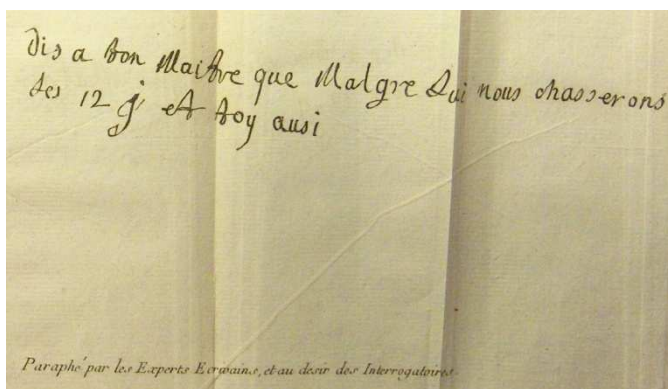 Dis a ton Maitre que Malgre Lui nous chasserons
les 12 j et toy ausi
Paraphé par les Experts Ecrivains, et au desir des Interrogatoires.